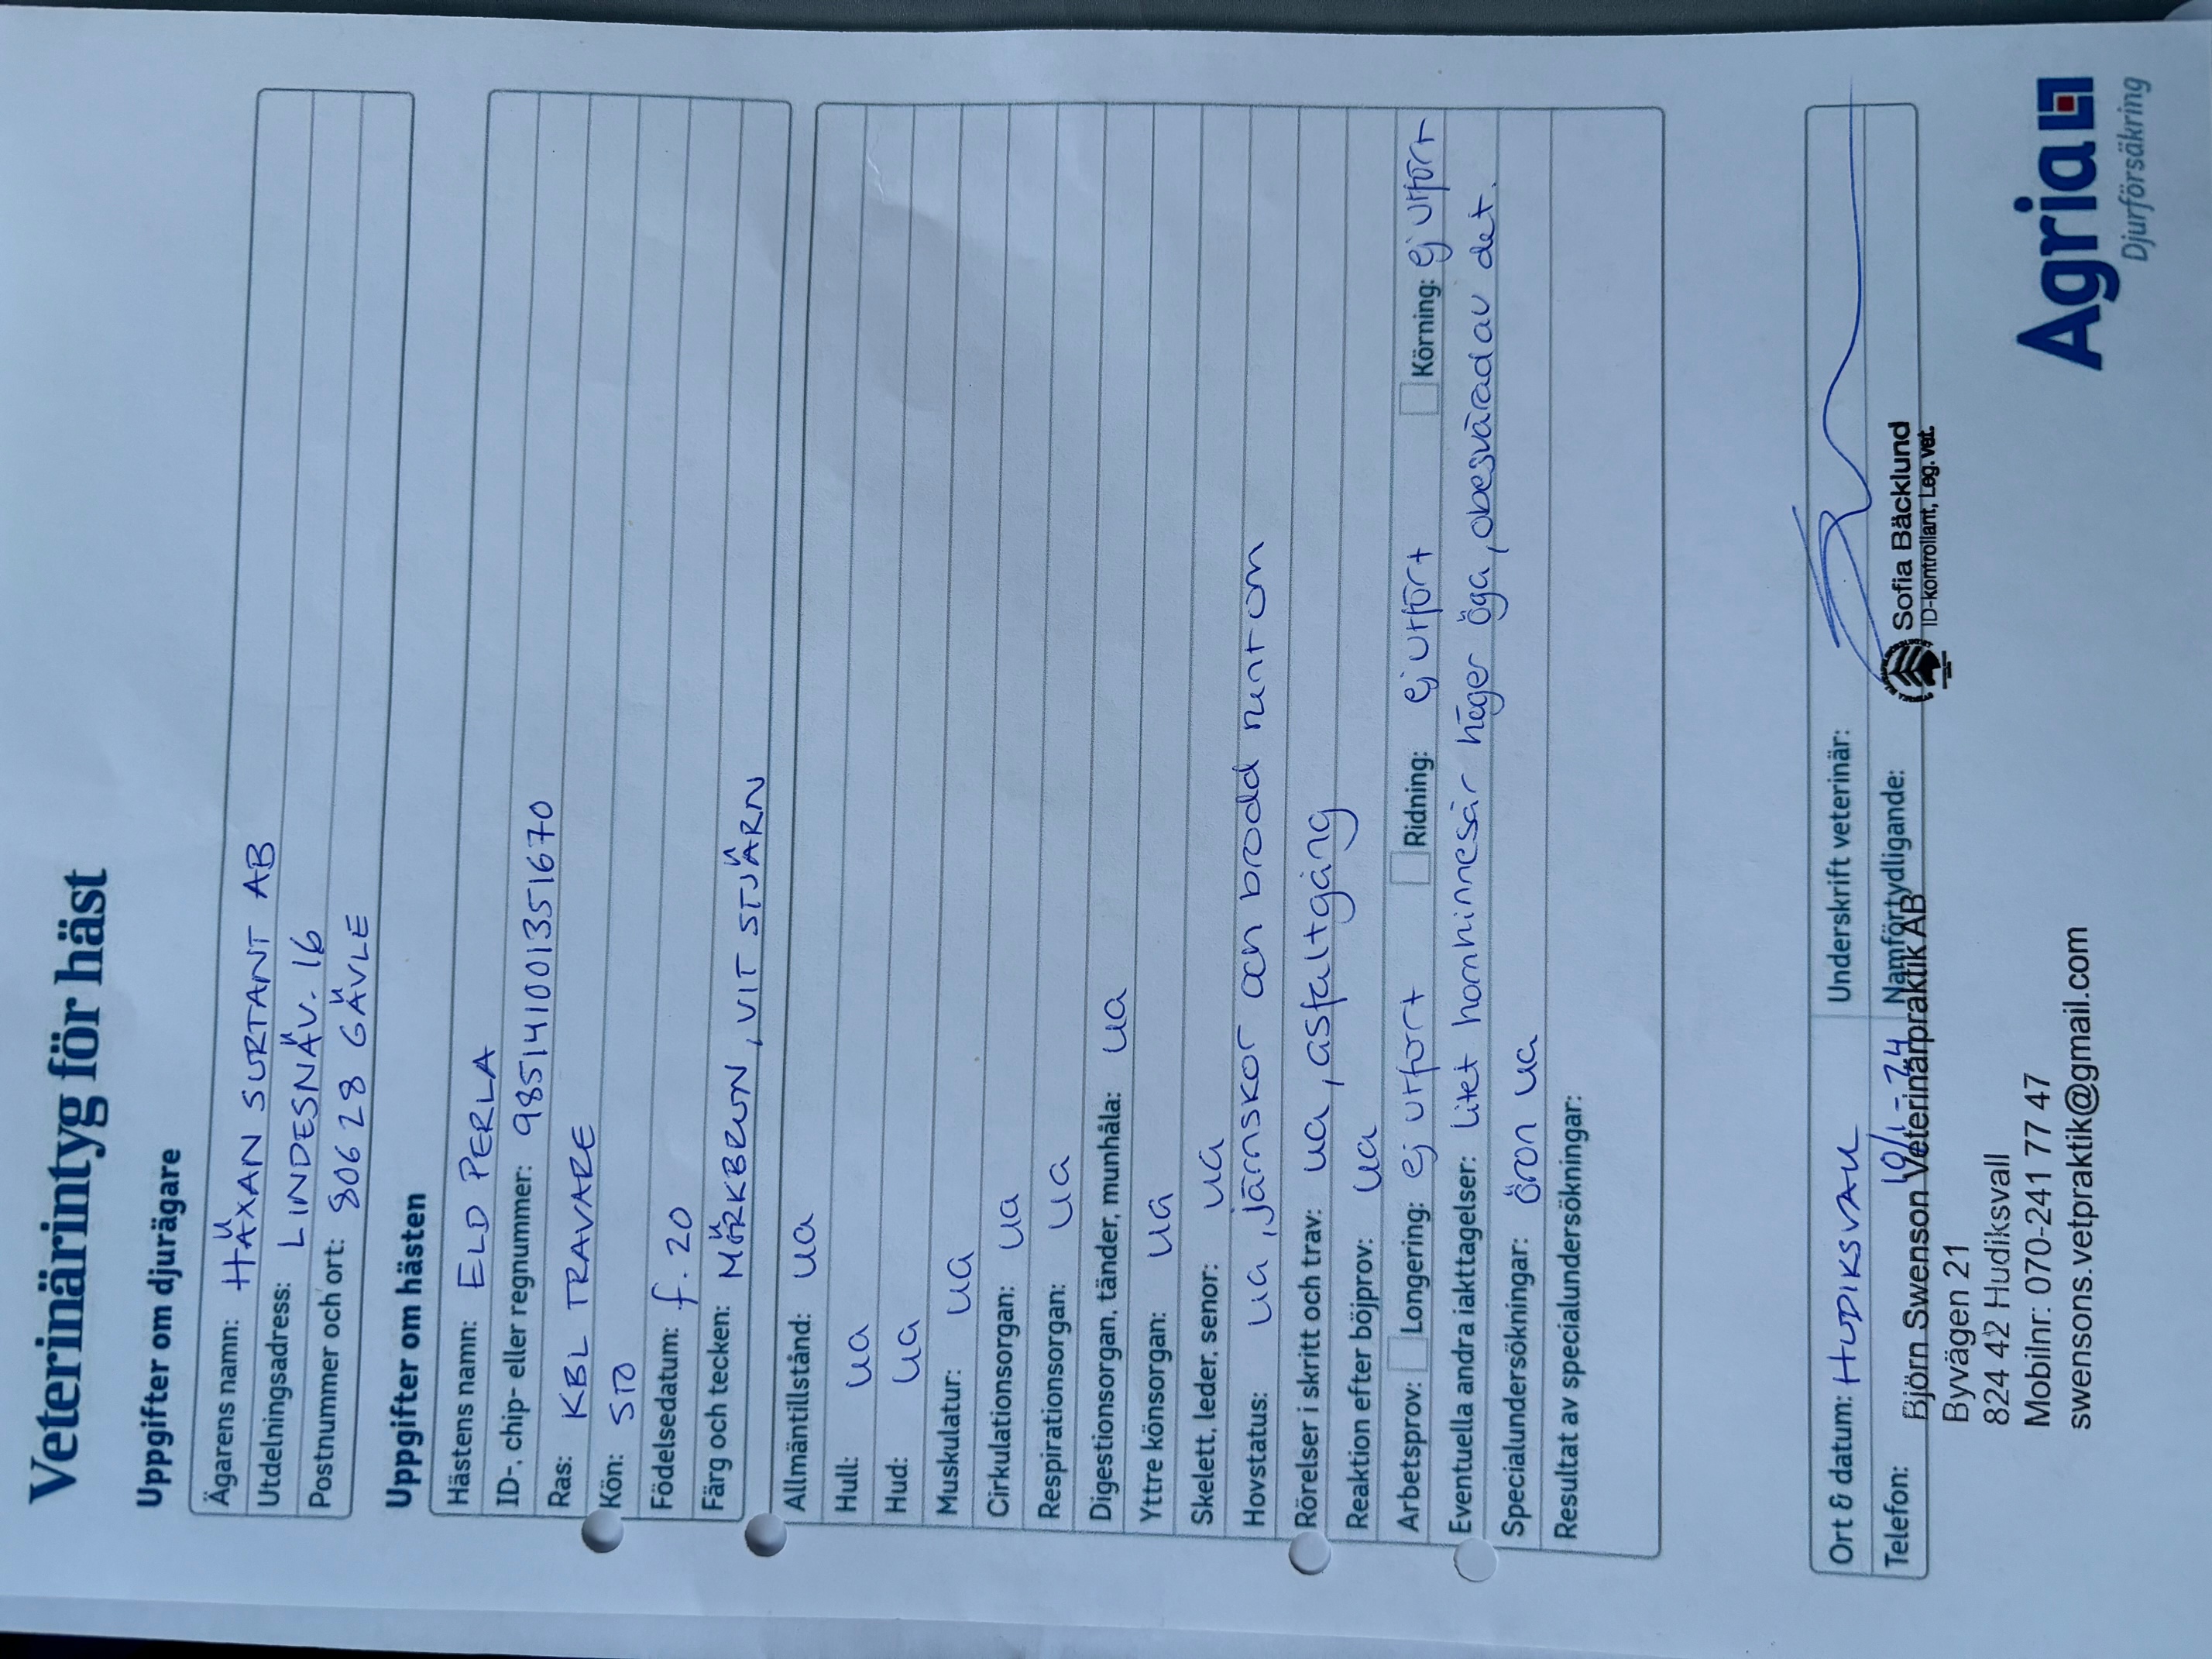 Veterinärintyg för häst
Uppgifter om djurägare
Ägarens namn: HÄXAN SURTANT AB
Utdelningsadress: LINDESNÄV. 16
Postnummer och ort: 806 28 GÄVLE
Uppgifter om hästen
Hästens namn: ELD PERLA
ID-, chip- eller regnummer: 985141001351670
Ras: KBL TRAVARE
Kön: STO
Födelsedatum: f. 20
Färg och tecken: MÖRKBRUN, VIT STJÄRN
Allmäntillstånd: ua
Hull: ua
Hud: ua
Muskulatur: ua
Cirkulationsorgan: ua
Respirationsorgan: ua
Digestionsorgan, tänder, munhåla: ua
Yttre könsorgan: ua
Skelett, leder, senor: ua
Hovstatus: ua, järnskor och brodd runtom
Rörelser i skritt och trav: ua, asfaltgång
Reaktion efter böjprov: ua
Arbetsprov: Longering: ej utfört Ridning: ej utfört Körning: ej utfört
Eventuella andra iakttagelser: Litet hornhinnesår höger öga, obesvärad av det.
Specialundersökningar: öron ua
Resultat av specialundersökningar:
Ort & datum: HUDIKSVALL 19/1-24 Underskrift veterinär:
Telefon: Namförtydligande:
Sofia Bäcklund
ID-kontrollant, Leg.vet.
Björn Swenson Veterinärpraktik AB
Byvägen 21
824 42 Hudiksvall
Mobilnr: 070-241 77 47
swensons.vetpraktik@gmail.com
Agria
Djurförsäkring